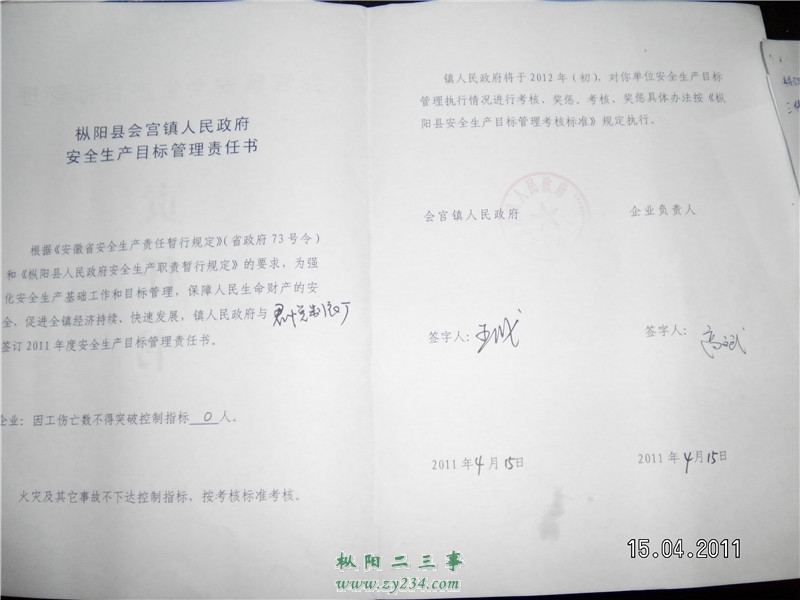 枞阳县会宫镇人民政府
安全生产目标管理责任书
根据《安徽省安全生产责任暂行规定》(省政府 73 号令)
和《枞阳县人民政府安全生产职责暂行规定》的要求，为强
化安全生产基础工作和目标管理，保障人民生命财产的安
全，促进全镇经济持续、快速发展，镇人民政府与
签订 2011 年度安全生产目标管理责任书。
企业：因工伤亡数不得突破控制指标 0 人。
火灾及其它事故不下达控制指标，按考核标准考核。
镇人民政府将于 2012 年（初），对你单位安全生产目标
管理执行情况进行考核、奖惩。考核、奖惩具体办法按《枞
阳县安全生产目标管理考核标准》规定执行。
人民政府
会宫镇人民政府
企业负责人
签字人：
签字人：高斌
2011 年 4 月 15 日
2011 年 4 月 15 日
15.04.2011
枞阳二三事
www.zy234.com